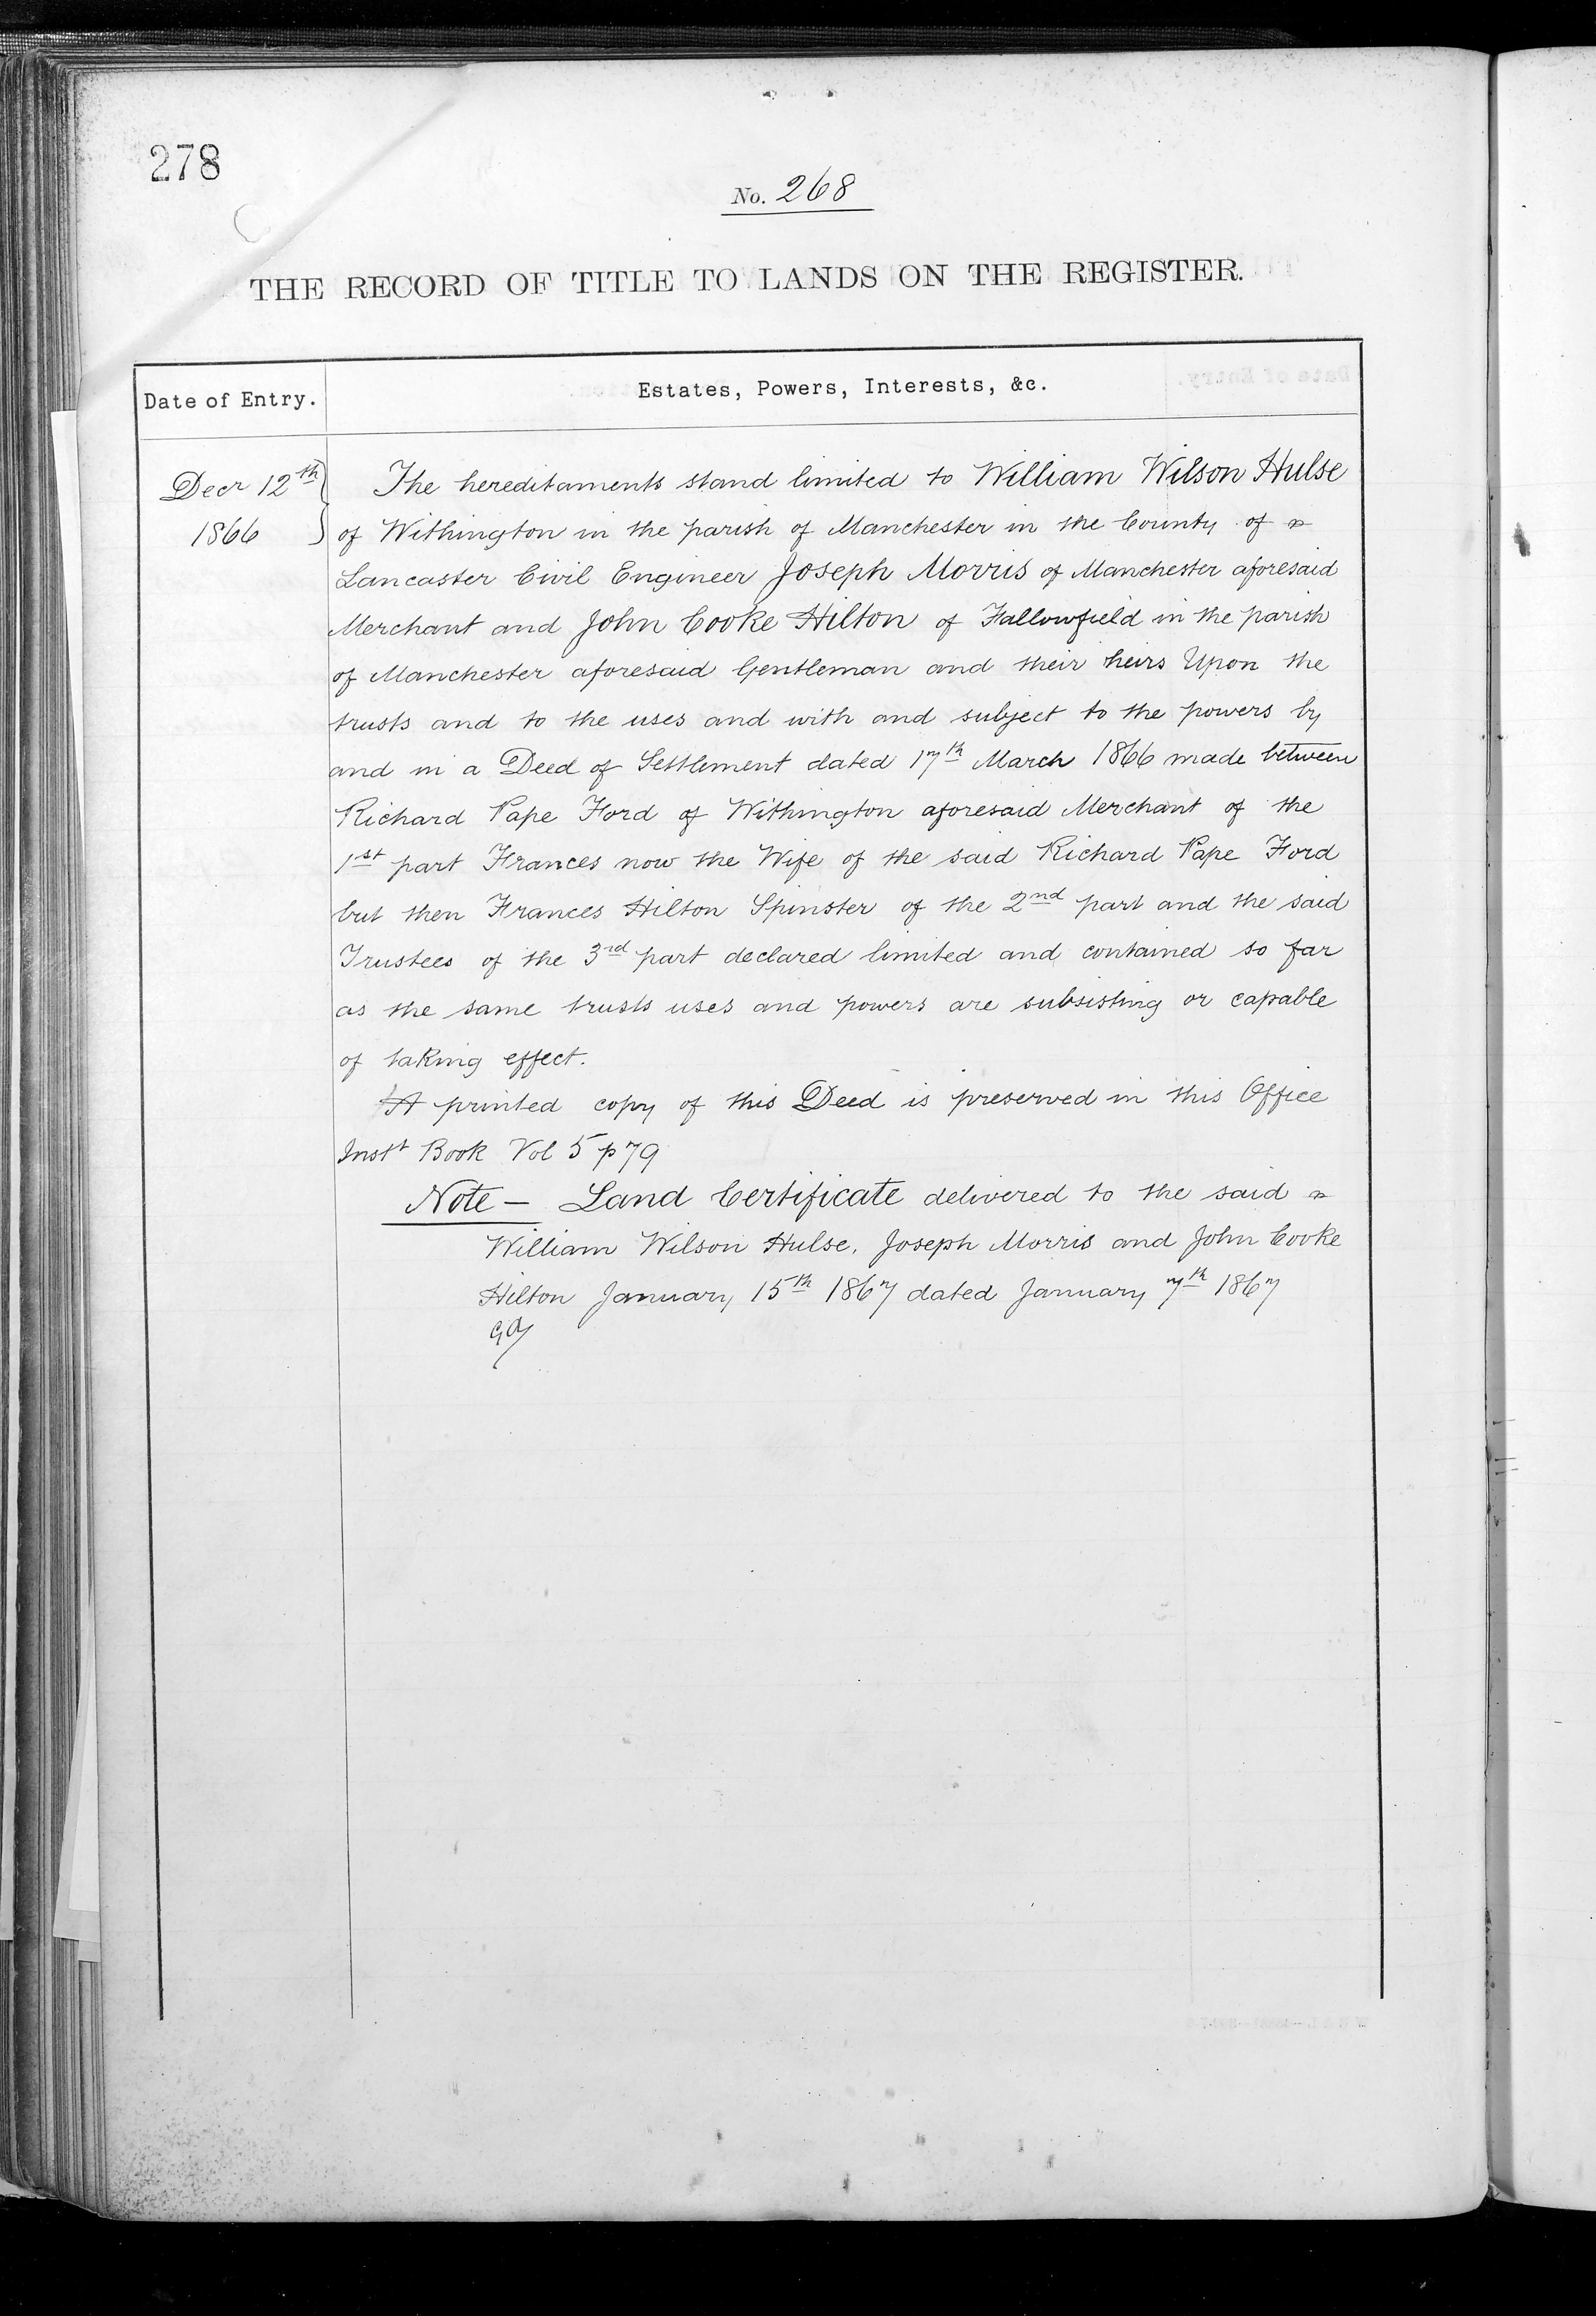 278
No. 268
THE RECORD OF TITLE TO LANDS ON THE REGISTER.
Date of Entry.
Estates, Powers, Interests, &c.
Decr 12th
1866
The hereditaments stand limited to William Wilson Hulse
of Withington in the parish of Manchester in the County of
Lancaster Civil Engineer Joseph Morris of Manchester aforesaid
Merchant and John Cooke Hilton of Fallowfield in the parish
of Manchester aforesaid Gentleman and their heirs Upon the
trusts and to the uses and with and subject to the powers by
and in a Deed of Settlement dated 17th March 1866 made between
Richard Pape Ford of Withington aforesaid Merchant of the
1st part Frances now the Wife of the said Richard Pape Ford
but then Frances Hilton Spinster of the 2nd part and the said
Trustees of the 3rd part declared limited and contained so far
as the same trusts uses and powers are subsisting or capable
of taking effect.
A printed copy of this Deed is preserved in this Office
Inst Book Vol 5 p 79
Note — Land Certificate delivered to the said
William Wilson Hulse, Joseph Morris and John Cooke
Hilton January 15th 1867 dated January 7th 1867